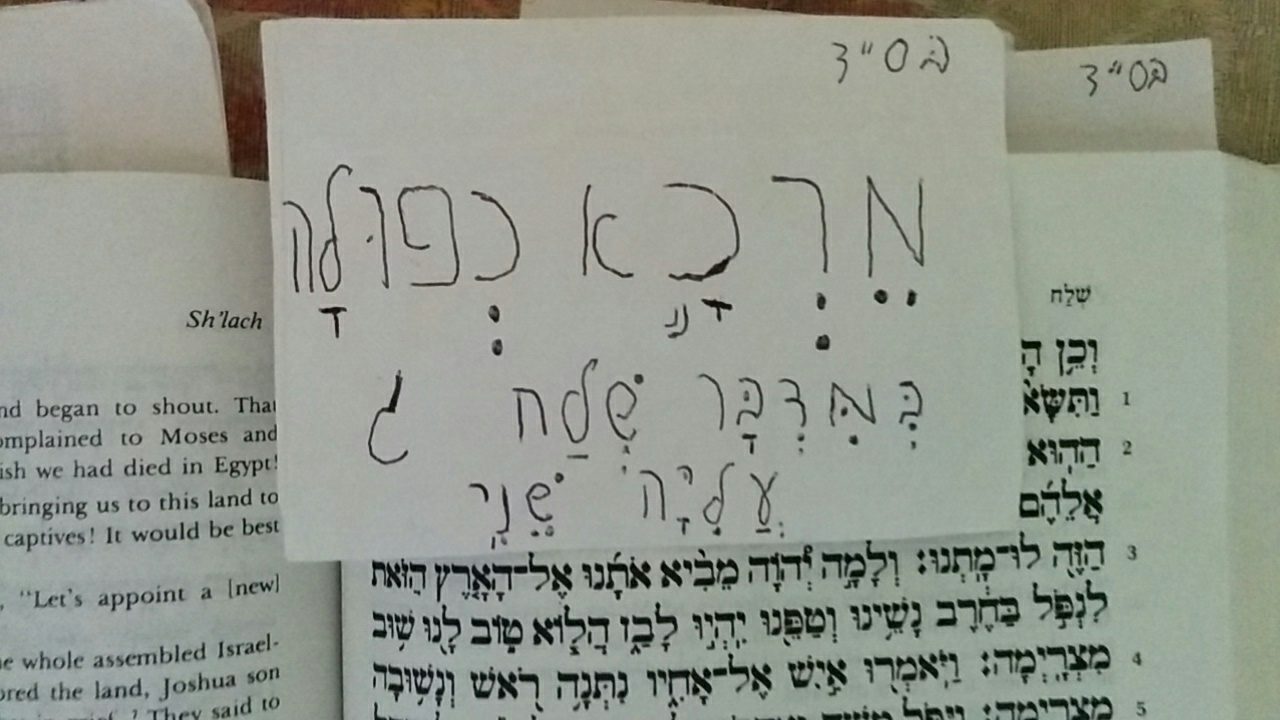 בס"ד
בס"ד
מֵרְכָא כְפוּלָה
בְּמִדְבָּר שְׁלַח ג
עֲלִיָּה שֵׁנִי
Sh'lach
nd began to shout. That
omplained to Moses and
ish we had died in Egypt!
bringing us to this land to
captives! It would be best
"Let's appoint a [new]
e whole assembled Israel-
ored the land, Joshua son
They said to
שְׁלַח
וְכֵ֥ן
1 וַתִּשָּׂא֙
2 הַה֑וּא
אֲלֵהֶ֜ם
3 הַזֶּ֖ה לוּ־מָֽתְנוּ׃ וְלָמָ֣ה יְ֠הֹוָ֠ה מֵבִ֨יא אֹתָ֜נוּ אֶל־הָאָ֤רֶץ הַזֹּאת֙
לִנְפֹּ֣ל בַּחֶ֔רֶב נָשֵׁ֥ינוּ וְטַפֵּ֖נוּ יִֽהְי֣וּ לָבַ֑ז הֲל֧וֹא ט֦וֹב לָ֖נוּ שׁ֥וּב
4 מִצְרָֽיְמָה׃ וַיֹּאמְר֖וּ אִ֣ישׁ אֶל־אָחִ֑יו נִתְּנָ֥ה רֹ֖אשׁ וְנָשׁ֥וּבָה
5 מִצְרָֽיְמָה׃ וַיִּפֹּ֥ל מֹשֶׁ֛ה